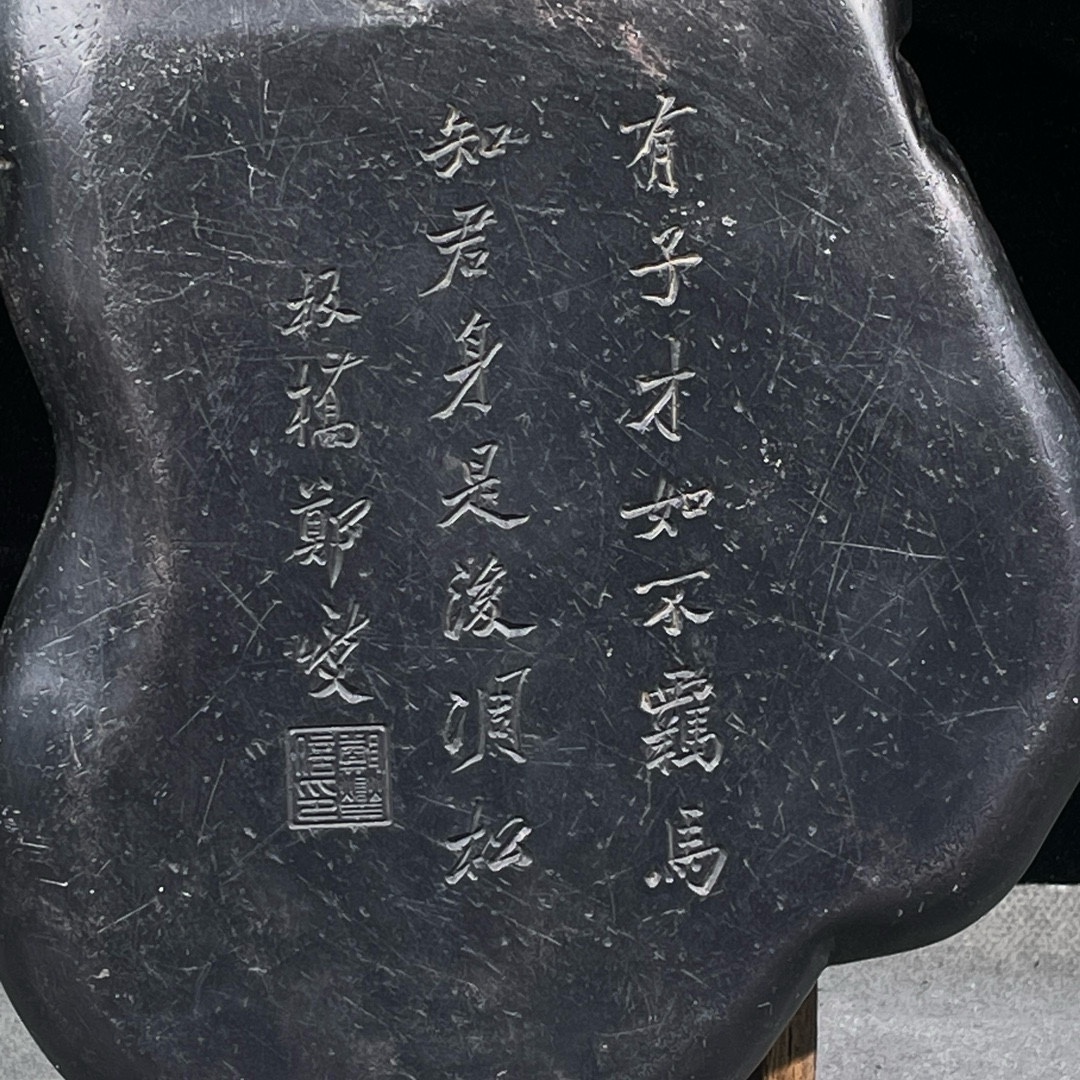 有子才如不覊馬
知君身是後凋松
板橋鄭燮